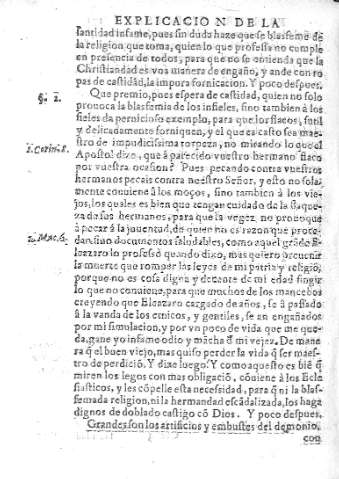 EXPLICACION DE LA
santidad infame, pues sin duda haze que se blasfeme de
la religion que toma, quien lo que professa no cumple
en presencia de todos, para que no se entienda que la
Christiandad es vna manera de engaño, y ande con ro
pas de castidad, la impura fornicacion. Y poco despues.
§. 2.
Que premio, pues espera de castidad, quien no solo
prouoca la blasfemia de los infieles, sino tambien à los
fieles da pernicioso exemplo, para que los flacos, sutil
y delicadamente forniquen, y el que es casto sea mae-
stro de impudicissima torpeza, no mirando lo que el
1. Corin. 8.
Apostol dixo, que à parecido vuestro hermano flaco
por vuestra ocasion? Pues pecando contra vuestros
hermanos pecais contra nuestro Señor, y esto no sola-
mente conuiene à los moços, sino tambien à los vie-
jos, los quales es bien que tengan cuidado de la flaque
za de sus hermanos, para que la vegez no prouoque
à pecar à la jouentud, de quien no es razon que proce
2. Mac. 6.
dan sino documentos saludables, como aquel gràde E-
leazaro lo professò quando dixo, mas quiero
la muerte que romper las leyes de mi patria y religiõ,
porque no es cosa digna y decente de mi edad fingir
lo que no conuiene, para que muchos de los mancebos
creyendo que Eleazaro cargado de años, se à passado
à la vanda de los etnicos, y gentiles, se an engañados
por mi simulacion, y por vn poco de vida que me que
da, gane yo infame odio y màcha đ mi vejez. De mane
ra q̃ el buen viejo, mas quiso perder la vida q̃ ser maes
tro de perdiciõ. Y dize luego. Y como aquesto es biẽ q̃
miren los legos con mas obligaciõ, cõuiene à los Ecle
siasticos, y les cõpelle esta necesidad, para q̃ ni la blas-
femada religion, ni la hermandad escãdalizada, los haga
dignos de doblado castigo cõ Dios. Y poco despues.
Grandes son los artificios y embustes del demonio,
con